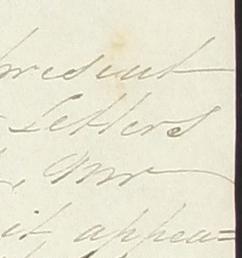 present
Letters
, Mr
it appea=